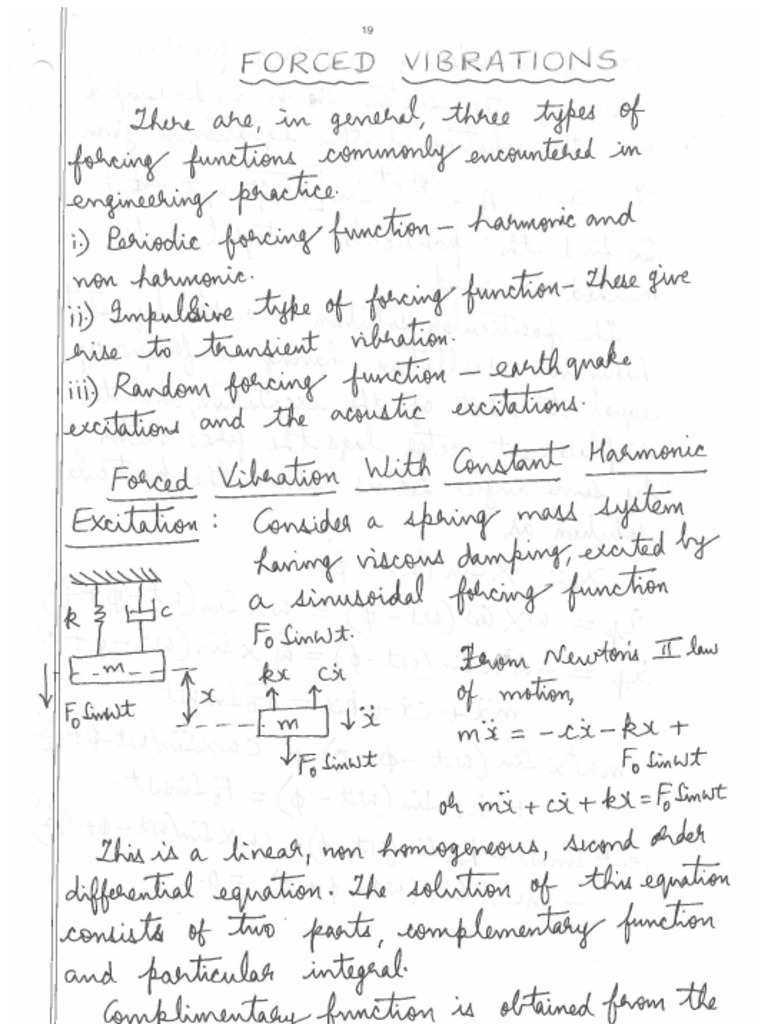 19
FORCED VIBRATIONS
There are, in general, three types of
forcing functions commonly encountered in
engineering practice.
i.) Periodic forcing function — harmonic and
non harmonic.
ii) Impulsive type of forcing function — These give
rise to transient vibration.
iii) Random forcing function — earthquake
excitations and the acoustic excitations.
Forced Vibration With Constant Harmonic
Excitation : Consider a spring mass system
having viscous damping, excited by
a sinusoidal forcing function
F₀ Sinωt.
k c
m
F₀ Sinωt
x
kx cẋ
m ẍ
F₀ Sinωt
From Newton's II law
of motion,
mẍ = -cẋ - kx +
F₀ Sinωt
or mẍ + cẋ + kx = F₀ Sinωt
This is a linear, non homogeneous, second order
differential equation. The solution of this equation
consists of two parts, complementary function
and particular integral.
Complimentary function is obtained from the